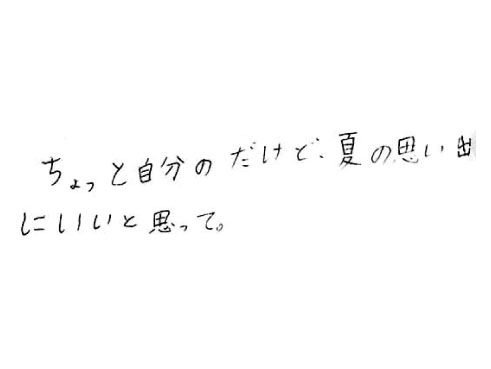 ちょっと自分のだけど、夏の思い出
にいいと思って。